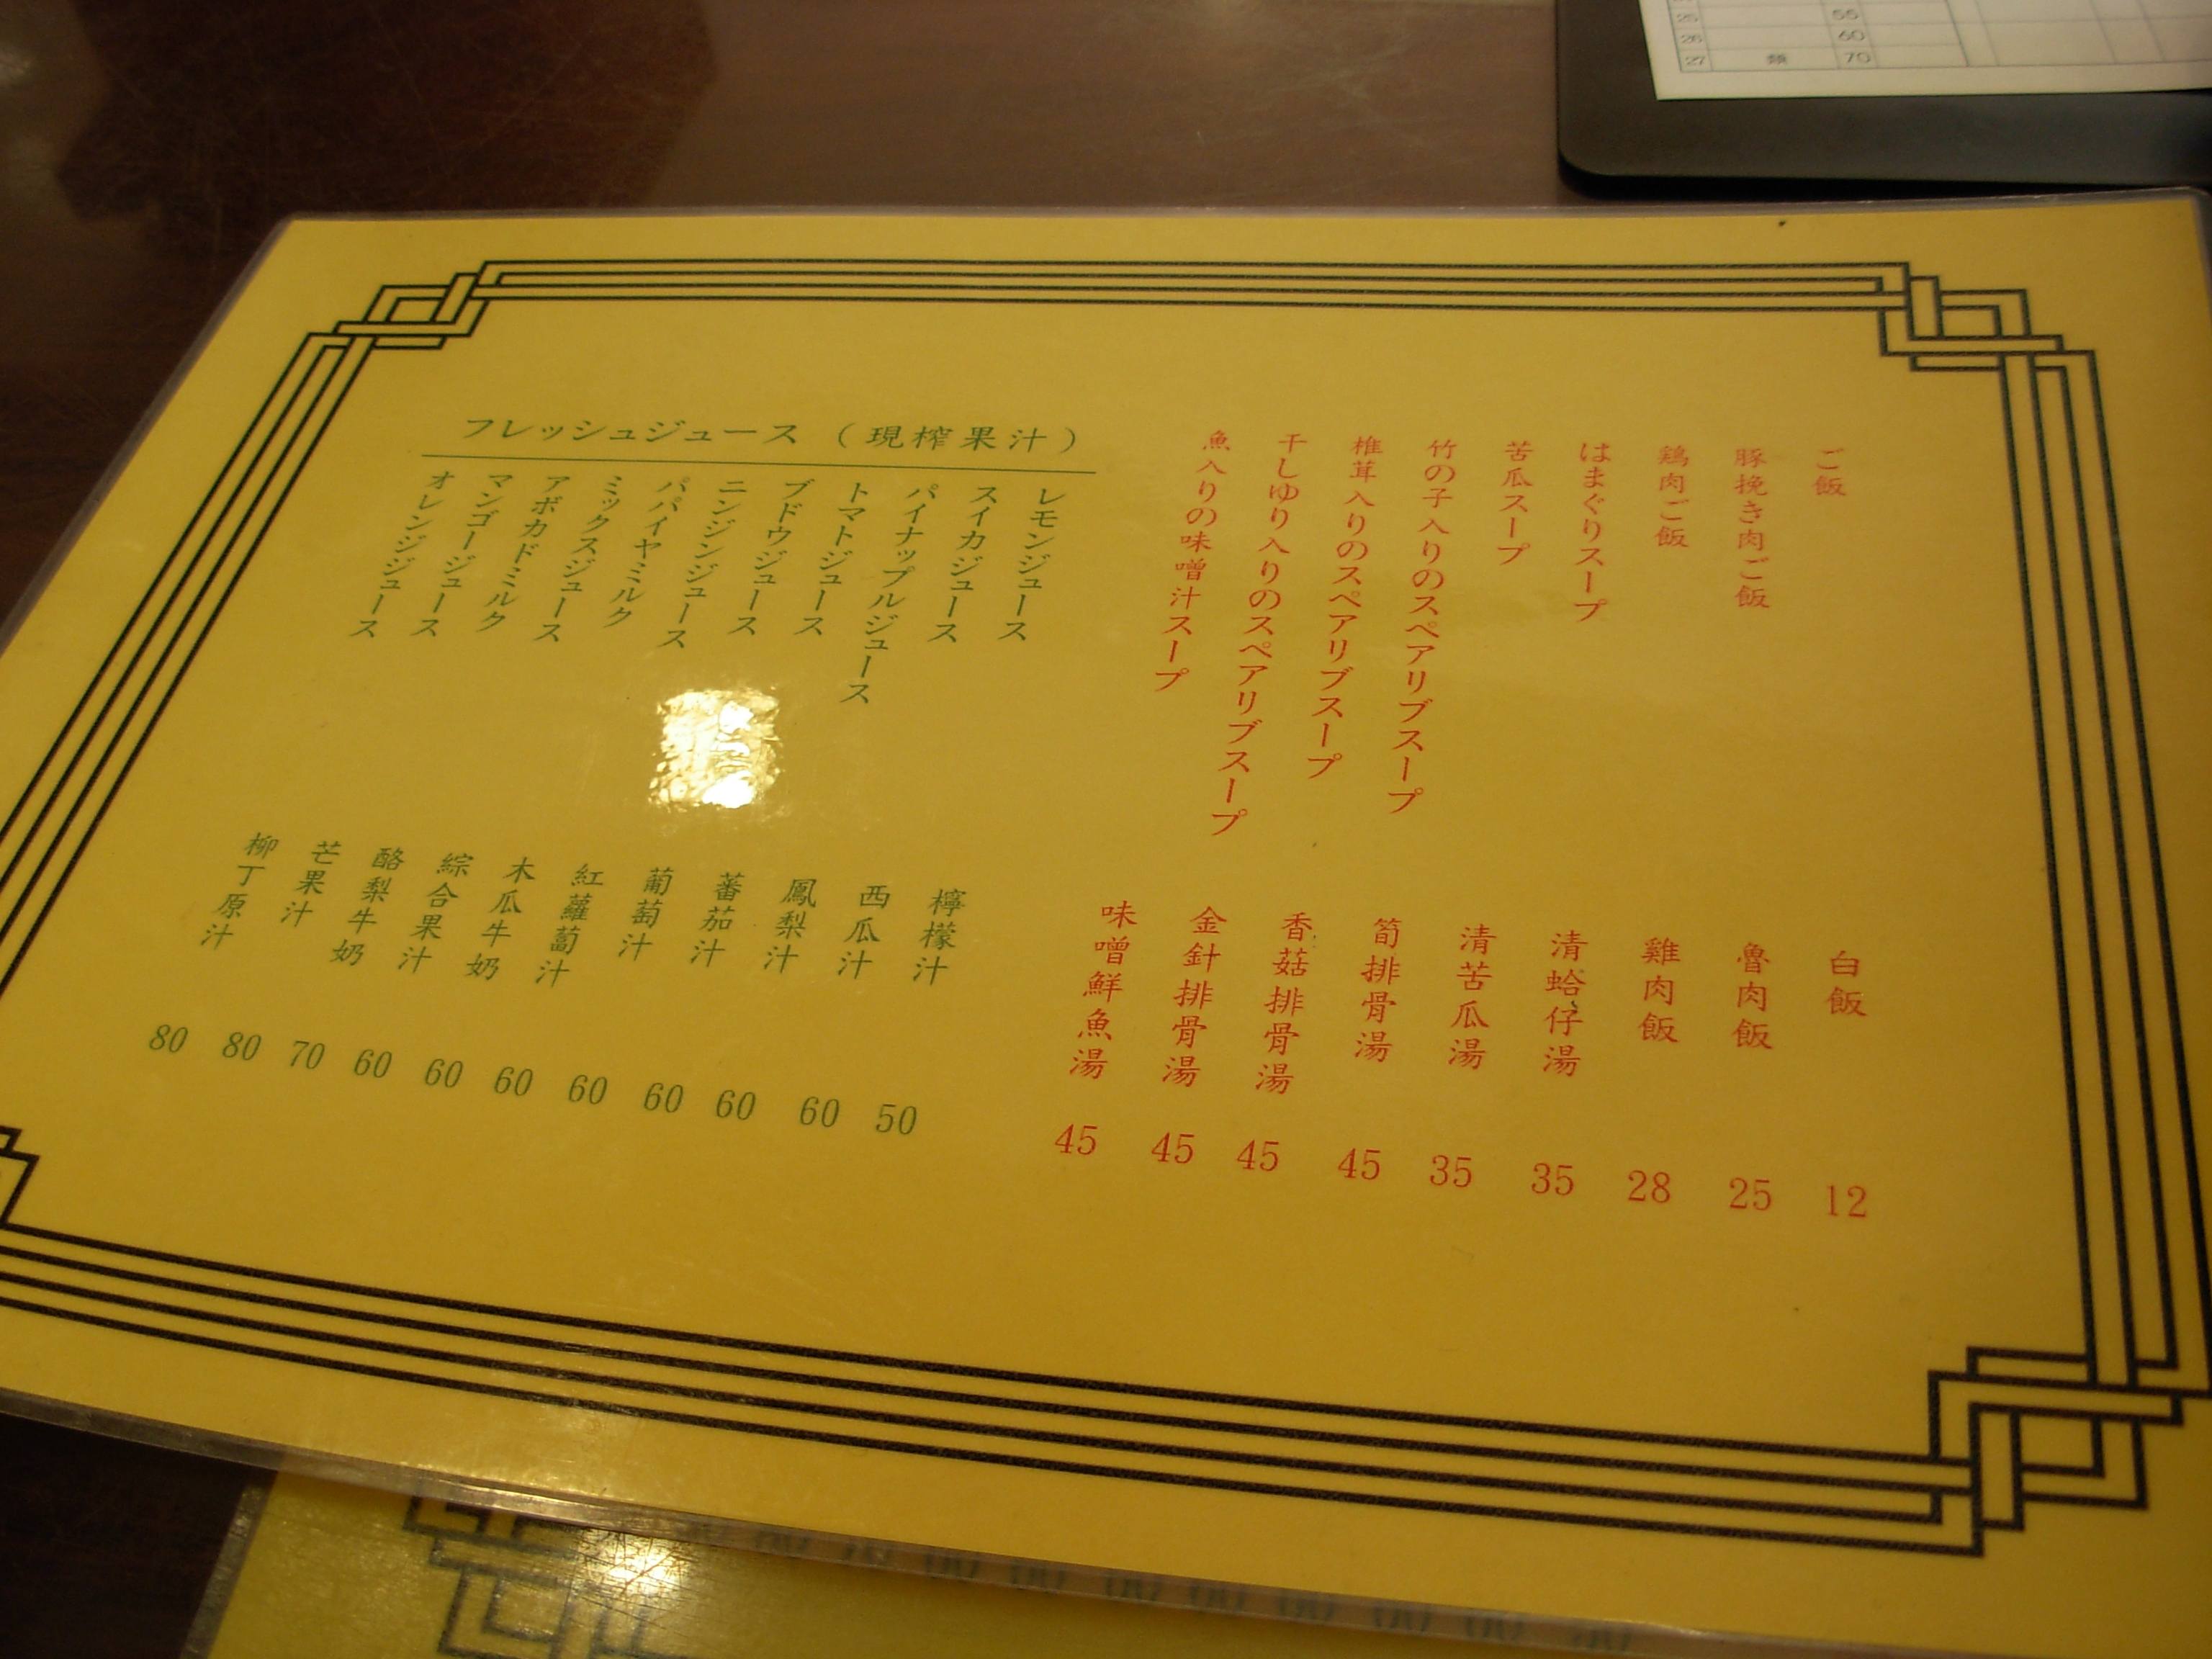 ご飯 白飯 12
豚挽き肉ご飯 魯肉飯 25
鶏肉ご飯 雞肉飯 28
はまぐりスープ 清蛤仔湯 35
苦瓜スープ 清苦瓜湯 35
竹の子入りのスペアリブスープ 筍排骨湯 45
椎茸入りのスペアリブスープ 香菇排骨湯 45
干しゆり入りのスペアリブスープ 金針排骨湯 45
魚入りの味噌汁スープ 味噌鮮魚湯 45
フレッシュジュース (現榨果汁)
レモンジュース 檸檬汁 50
スイカジュース 西瓜汁 60
パイナップルジュース 鳳梨汁 60
トマトジュース 蕃茄汁 60
ブドウジュース 葡萄汁 60
ニンジンジュース 紅蘿蔔汁 60
パパイヤミルク 木瓜牛奶 60
ミックスジュース 綜合果汁 60
アボカドミルク 酪梨牛奶 70
マンゴージュース 芒果汁 80
オレンジジュース 柳丁原汁 80
25 55
26 60
27 類 70